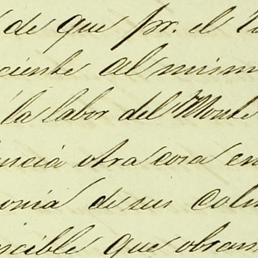 de que pr. el
ciente al mismo
la labor del Monte
uncia otra cosa en
onia de sus Colo
ncible que obran